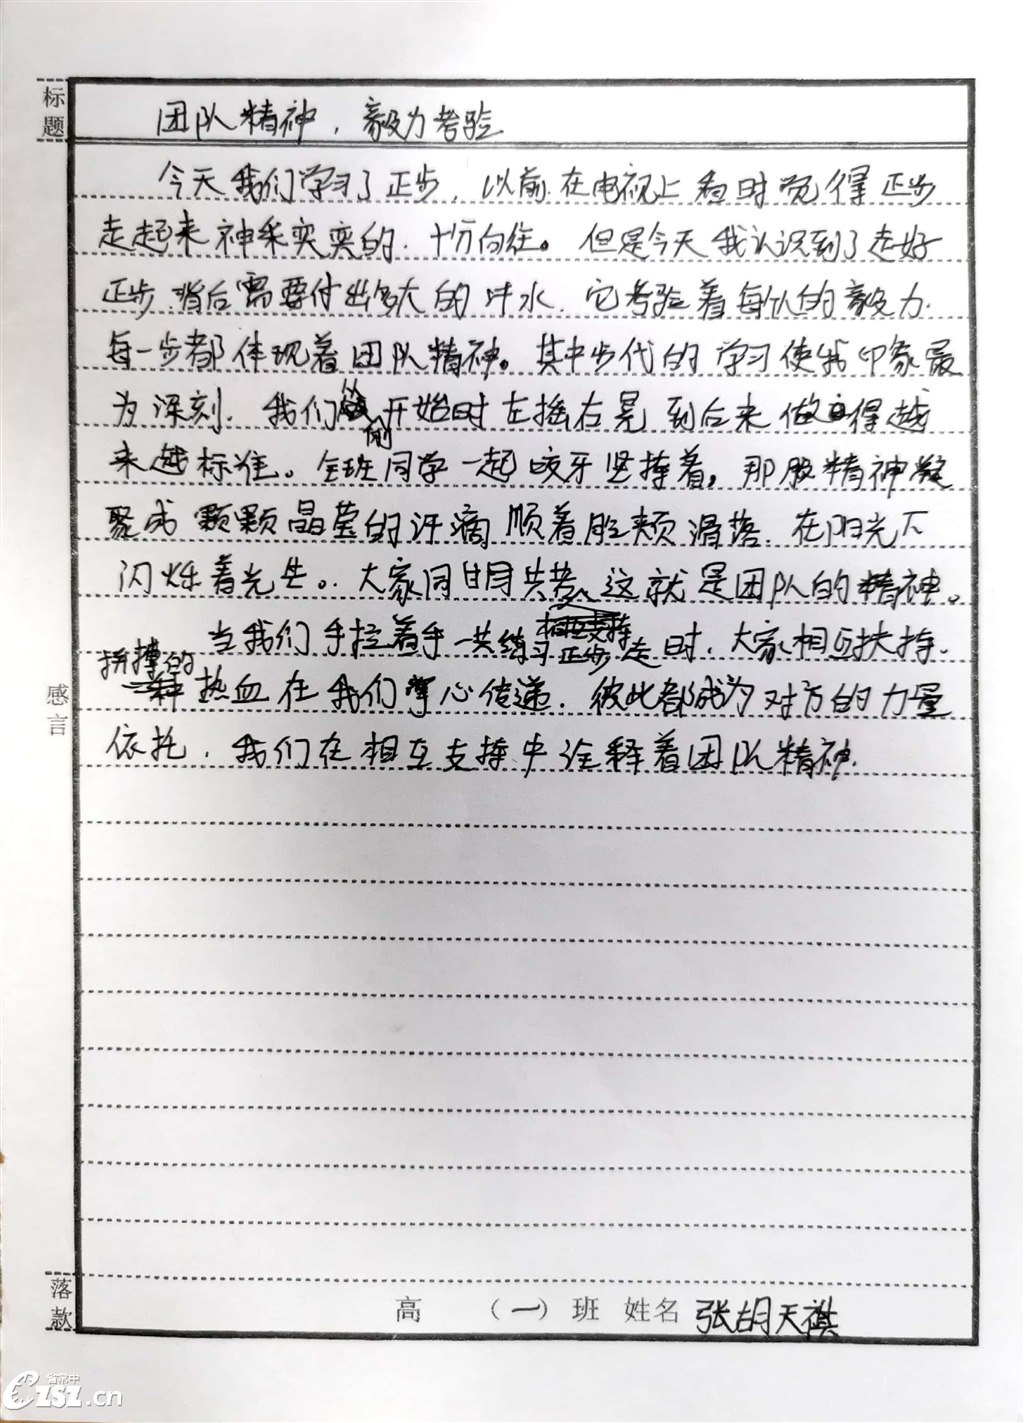 标题
团队精神，毅力考验
今天我们学习了正步，以前在电视上看时觉得正步
走起来神采奕奕的，十万向往。但是今天我认识到了走好
正步背后需要付出多大的汗水，它考验着每个人的毅力，
每一步都体现着团队精神。其中步伐的学习使我印象最
为深刻，我们从刚开始时左摇右晃到后来做得越
来越标准。全班同学一起咬牙坚持着，那股精神凝
聚成颗颗晶莹的汗滴顺着脸颊滑落，在阳光下
闪烁着光芒。大家同甘共苦，这就是团队的精神。
当我们手拉着手一共练习正步走时，大家相互扶持，
拼搏的热血在我们掌心传递，彼此都成为对方的力量
依托，我们在相互支持中诠释着团队精神.
感言
落款
高 （一）班 姓名 张胡天祺
省常中
CZSZ.cn